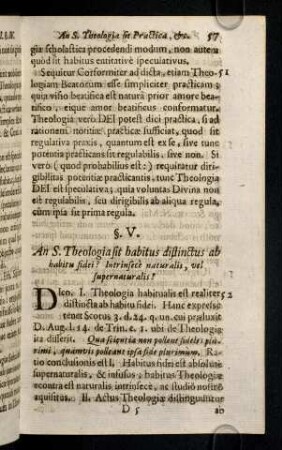 An S. Theologia sit Practica, &c. 57
gia scholastica procedendi modum, non autem
quòd sit habitus entitativè speculativus.
Sequitur Conformiter ad dicta, etiam Theo- 51
logiam Beatorum esse simpliciter practicam;
quia visio beatifica est naturâ prior amore bea-
tifico, eique amor beatificus conformatur.
Theologia verò DEI potest dici practica, si ad
rationem notitiæ practicæ sufficiat, quod sit
regulativa praxis, quantum est ex se, sive tunc
potentia practicans sit regulabilis, sive non. Si
verò (quod probabilius est:) requiratur dirigi-
bilitas potentiæ practicantis, tunc Theologia
DEI est speculativa; quia voluntas Divina non
est regulabilis, seu dirigibilis ab aliqua regula,
cùm ipsa sit prima regula.
§. V.
An S. Theologia sit habitus distinctus ab
habitu fidei? Intrinsecè naturalis, vel
supernaturalis?
DIco. I. Theologia habitualis est realiter 52
distincta ab habitu fidei. Hanc expressè
tenet Scotus 3. d. 24. q. un. cui præluxit
D. Aug. l. 14. de Trin. c. 1. ubi de Theologia
ita disserit. Quâ scientiâ non pollent fideles plu-
rimi, quamvis polleant ipsâ fide plurimùm. Ra-
tio conclusionis est I. Habitus fidei est absolutè
supernaturalis, & infusus, habitus Theologiæ
contra est naturalis intrinsecè, ac studio nostro
aquisitus. II. Actus Theologiæ distinguuntur
D 5 ab